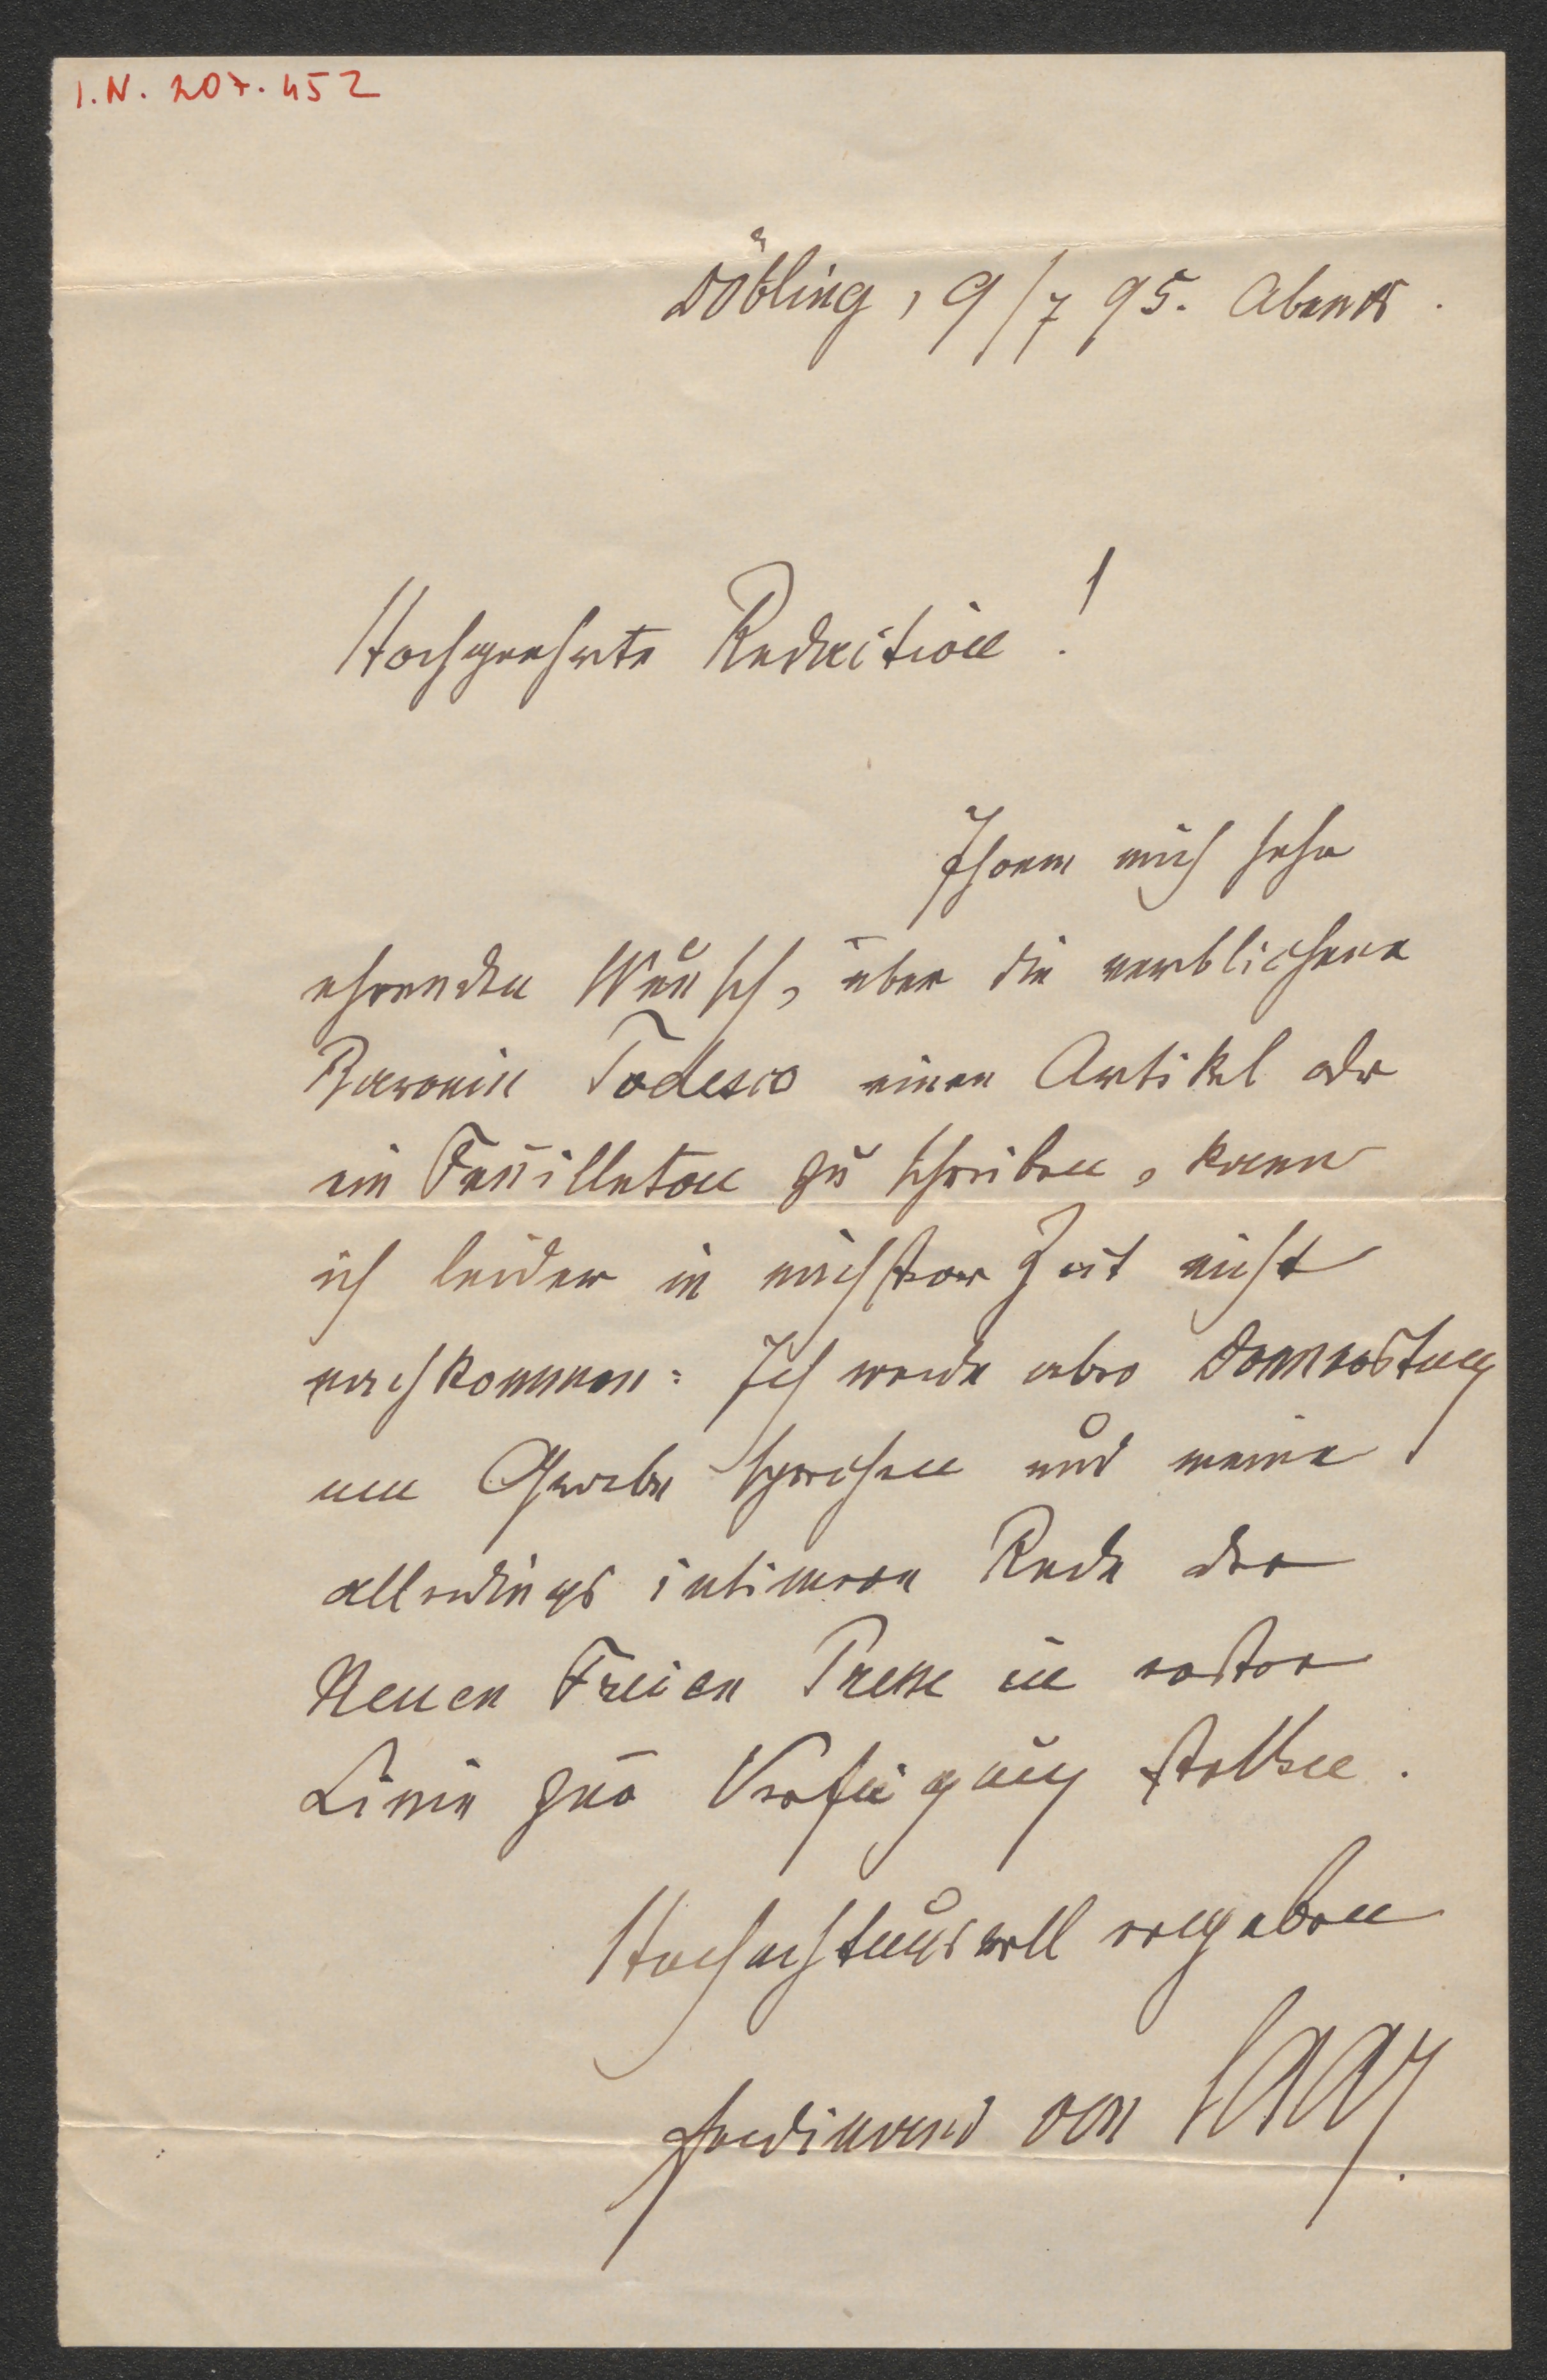 I.N. 207.452
Döbling, 9/7 95. Abends.
Hochgeehrte Redaction!
Ihrem mich sehr
ehrenden Wunsch, über die verblichene
Baronin Todesco einen Artikel oder
ein Feuilleton zu schreiben, kann
ich leider in nächster Zeit nicht
nachkommen: Ich werde aber Donnerstag
am Grabe sprechen und meine
allerdings intimere Rede der
Neuen Freien Presse in erster
Linie zur Verfügung stellen.
Hochachtungsvoll ergeben
Ferdinand von Saar.